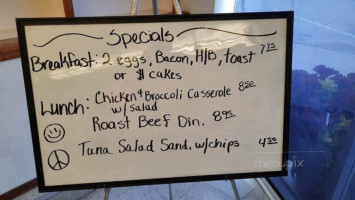 Specials
Breakfast: 2 eggs, Bacon, H/B, toast 7.75
or $ cakes
Lunch: Chicken & Broccoli Casserole 8.50
w/salad
Roast Beef Din. 8.95
Tuna Salad Sand. w/chips 4.50
menupix